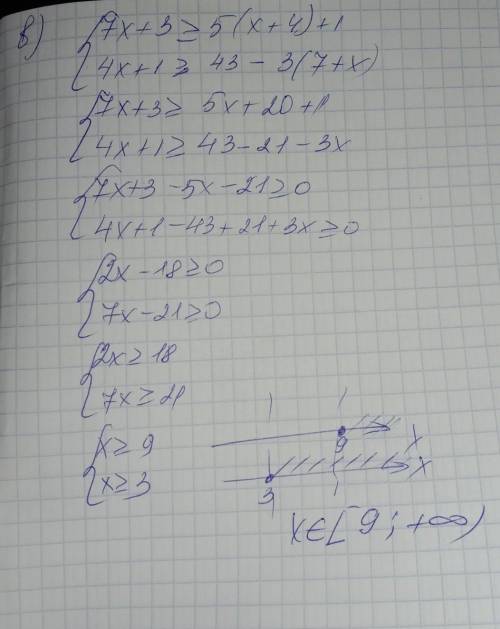 в) 7x+3 ≥ 5(x+4)+1
4x+1 ≥ 43 - 3(7+x)
7x+3 ≥ 5x+20+1
4x+1 ≥ 43-21-3x
7x+3-5x-21≥0
4x+1-43+21+3x≥0
2x-18≥0
7x-21≥0
2x≥18
7x≥21
x≥9
9 x
x≥3
3 x
x∈[9; +∞)